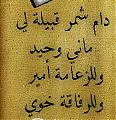 دام شمر قبيلة لي
ماني وحيد
وللزعامة أمير
وللرفاقة خوي